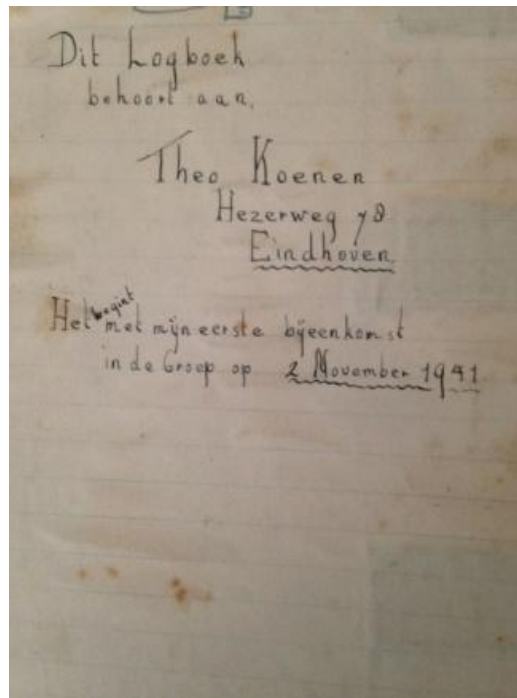 Dit Logboek
behoort aan,
Theo Koenen
Hezerweg 78
Eindhoven.
Het begint met mijn eerste bijeenkomst
in de Groep op 2 November 1941.